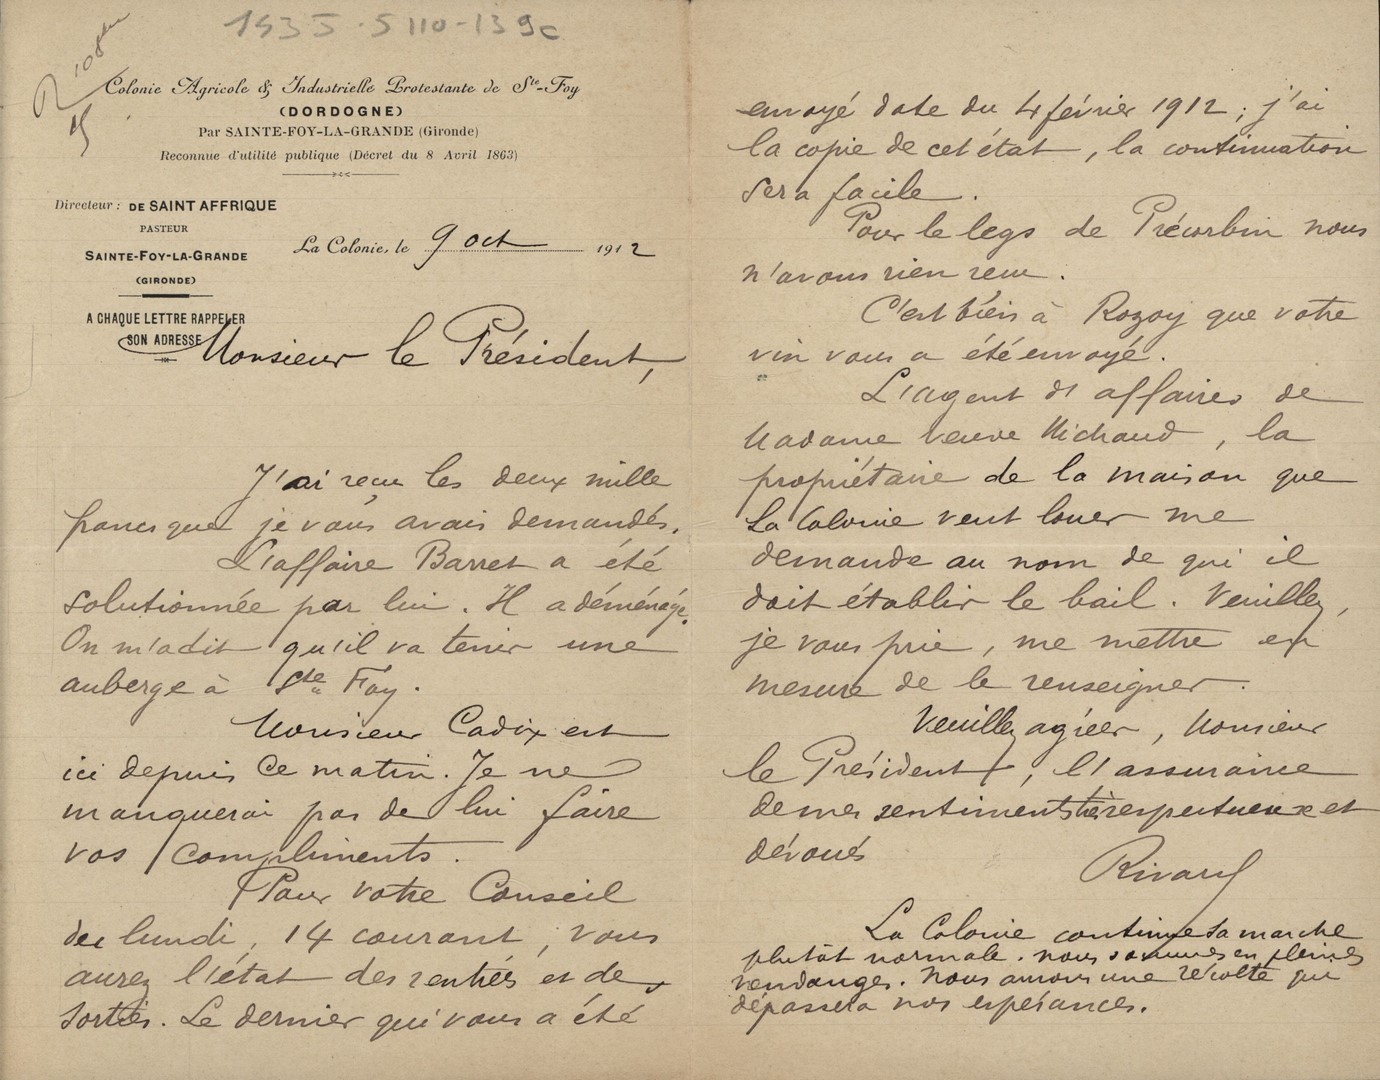 1935-5110-139c
Colonie Agricole & Industrielle Protestante de Ste-Foy
(DORDOGNE)
Par SAINTE-FOY-LA-GRANDE (Gironde)
Reconnue d'utilité publique (Décret du 8 Avril 1863)
Directeur : DE SAINT AFFRIQUE
PASTEUR
SAINTE-FOY-LA-GRANDE
(GIRONDE)
A CHAQUE LETTRE RAPPELER
SON ADRESSE
La Colonie, le 9 oct 1912
Monsieur le Président,
J'ai reçu les deux mille
francs que je vous avais demandés.
L'affaire Barret a été
solutionnée par lui. Il a déménagé.
On m'a dit qu'il va tenir une
auberge à Ste Foy.
Monsieur Cadix est
ici depuis ce matin. Je ne
manquerai pas de lui faire
vos compliments.
Pour votre Conseil
du lundi, 14 courant, vous
aurez l'état des rentrées et des
sorties. Le dernier qui vous a été
envoyé date du 4 février 1912 ; j'ai
la copie de cet état, la continuation
sera facile.
Pour le legs de Précorbin nous
n'avons rien reçu.
C'est bien à Rozoy que votre
vin vous a été envoyé.
L'agent d'affaires de
Madame veuve Michaud, la
propriétaire de la maison que
La Colonie veut louer me
demande au nom de qui il
doit établir le bail. Veuillez,
je vous prie, me mettre en
mesure de le renseigner.
Veuillez agréer, Monsieur
le Président, l'assurance
de mes sentiments très respectueux et
dévoués
Rivard
La Colonie continue sa marche
plutôt normale. Nous sommes en pleines
vendanges. Nous aurons une récolte qui
dépassera nos espérances.